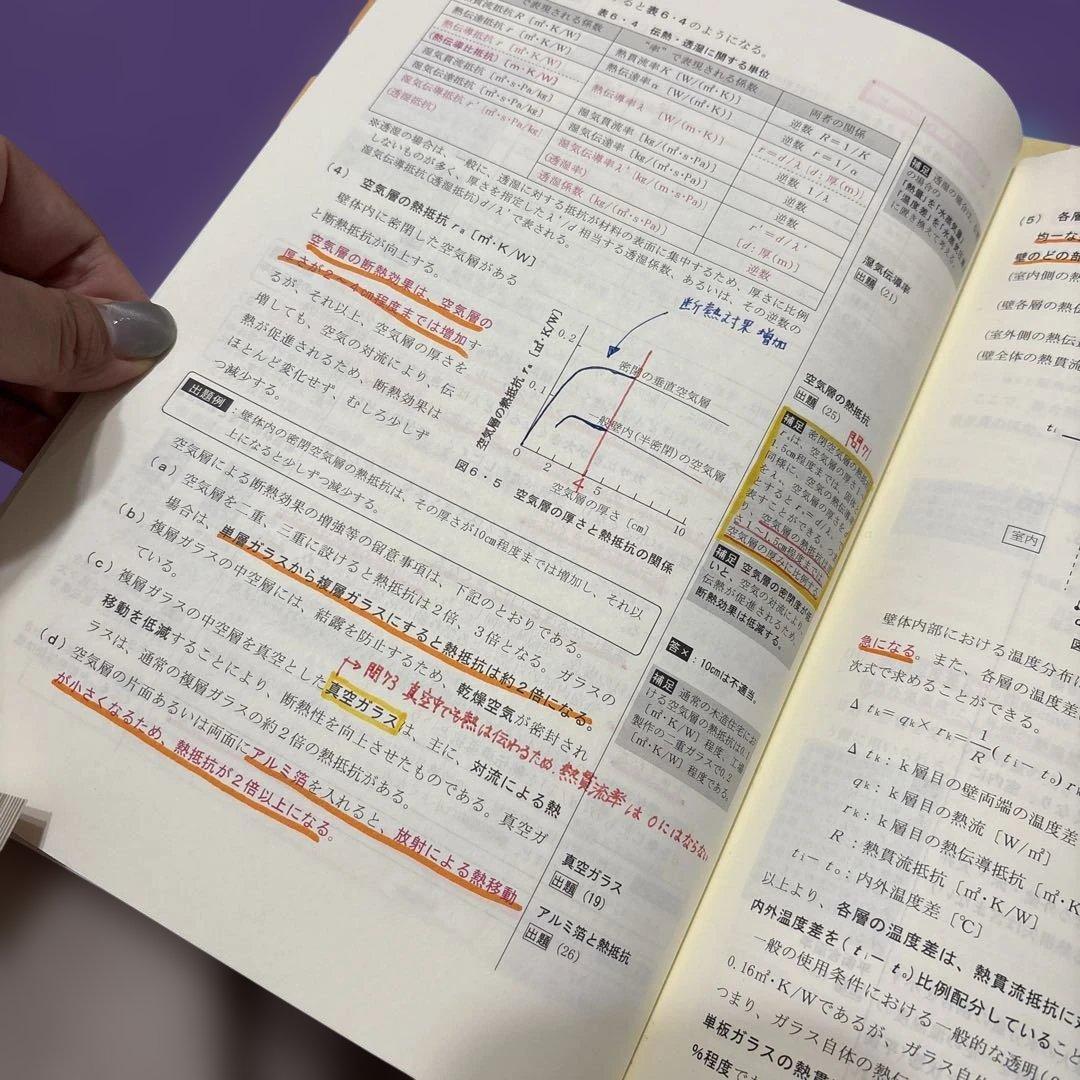 すると表6・4のようになる。
表6・4 伝熱・透湿に関する単位
で表現される係数
“率”で表現される係数
両者の関係
熱貫流抵抗R〔㎡・K/W〕
熱貫流率K〔W/(㎡・K)〕
逆数 R=1/K
熱伝達抵抗r〔㎡・K/W〕
熱伝達率α〔W/(㎡・K)〕
逆数 r=1/α
熱伝導抵抗r〔㎡・K/W〕
熱伝導率λ〔W/(m・K)〕
r=d/λ〔d:厚(m)〕
(熱伝導比抵抗)〔m・K/W〕
逆数 1/λ
湿気貫流抵抗〔㎡・s・Pa/kg〕
湿気貫流率〔kg/(㎡・s・Pa)〕
逆数
湿気伝達抵抗〔㎡・s・Pa/kg〕
湿気伝達率〔kg/(㎡・s・Pa)〕
逆数
湿気伝導抵抗r'〔㎡・s・Pa/kg〕
(透湿抵抗)
湿気伝導率λ'〔kg/(m・s・Pa)〕
(透湿率)
r'=d/λ'
〔d:厚(m)〕
透湿係数〔kg/(㎡・s・Pa)〕
逆数
※透湿の場合は、一般に、透湿に対する抵抗が材料の表面に集中するため、厚さに比例
しないものが多く、厚さを指定したλ'/d相当する透湿係数、あるいは、その逆数の
湿気伝導抵抗(透湿抵抗)d/λ'で表される。
(4) 空気層の熱抵抗ra〔㎡・K/W〕
壁体内に密閉した空気層がある
と断熱抵抗が向上する。
空気層の断熱効果は、空気層の
厚さが2〜4cm程度までは増加す
るが、それ以上、空気層の厚さを
増しても、空気の対流により、伝
熱が促進されるため、断熱効果は
ほとんど変化せず、むしろ少しず
つ減少する。
断熱効果 増加
空気層の熱抵抗ra〔㎡・K/W〕
0.2
0.1
密閉の垂直空気層
一般壁内(半密閉)の空気層
0 2 4 5 10
空気層の厚さ〔cm〕
図6・5 空気層の厚さと熱抵抗の関係
出題例:壁体内の密閉空気層の熱抵抗は、その厚さが10cm程度までは増加し、それ以
上になると少しずつ減少する。
空気層による断熱効果の増強等の留意事項は、下記のとおりである。
(a) 空気層を二重、三重に設けると熱抵抗は2倍、3倍となる。ガラスの
場合は、単層ガラスから複層ガラスにすると熱抵抗は約2倍になる。
(b) 複層ガラスの中空層には、結露を防止するため、乾燥空気が密封され
ている。
問73 真空中でも熱は伝わるため、熱貫流率は0にはならない
(c) 複層ガラスの中空層を真空とした真空ガラスは、主に、対流による熱
移動を低減することにより、断熱性を向上させたものである。真空ガ
ラスは、通常の複層ガラスの約2倍の熱抵抗がある。
(d) 空気層の片面あるいは両面にアルミ箔を入れると、放射による熱移動
が小さくなるため、熱抵抗が2倍以上になる。
補足 透湿の場
の場合の
「熱」を「水蒸気
「温度差」を
に置き換えて
湿気伝導率
出題 (21)
空気層の熱抵抗
出題 (25)
問71
補足 密閉空気層の熱
raは、空気層の厚さ
1.5cm程度までは、固体
同様に、空気層の厚さを
d、空気の熱伝導率を
λとするとr=d/λ
表すことができる。つ
り、空気層の熱抵抗は
さ1〜1.5cm程度までは、
空気層の厚みに比例
補足 空気層の密閉度が低
いと、空気の対流により、
伝熱が促進されるため、
断熱効果は低減する。
答×:10cmは不適当。
補足 通常の木造住宅にお
ける空気層の熱抵抗は0.1
〔㎡・K/W〕程度、工場
製作の二重ガラスで0.2
〔㎡・K/W〕程度である。
真空ガラス
出題 (19)
アルミ箔と熱抵抗
出題 (26)
(5) 各層
均一な
壁のどの部
(室内側の熱
(壁各層の熱伝
(室外側の熱伝
(壁全体の熱貫流
ti
室内
壁体内部における温度分布は
急になる。また、各層の温度差
次式で求めることができる。
Δtk=qk×rk=1/R(ti−to)rk
Δtk:k層目の壁両端の温度差
qk:k層目の熱流〔W/㎡〕
rk:k層目の熱伝導抵抗〔㎡・K
R:熱貫流抵抗〔㎡・K/W〕
ti−to:内外温度差〔℃〕
以上より、各層の温度差は、熱貫流抵抗に対
内外温度差を(ti−to)比例配分していること
一般の使用条件における一般的な透明
0.16㎡・K/Wであるが、ガラス自体の
つまり、ガラス自体の熱伝
単板ガラスの熱貫
%程度で